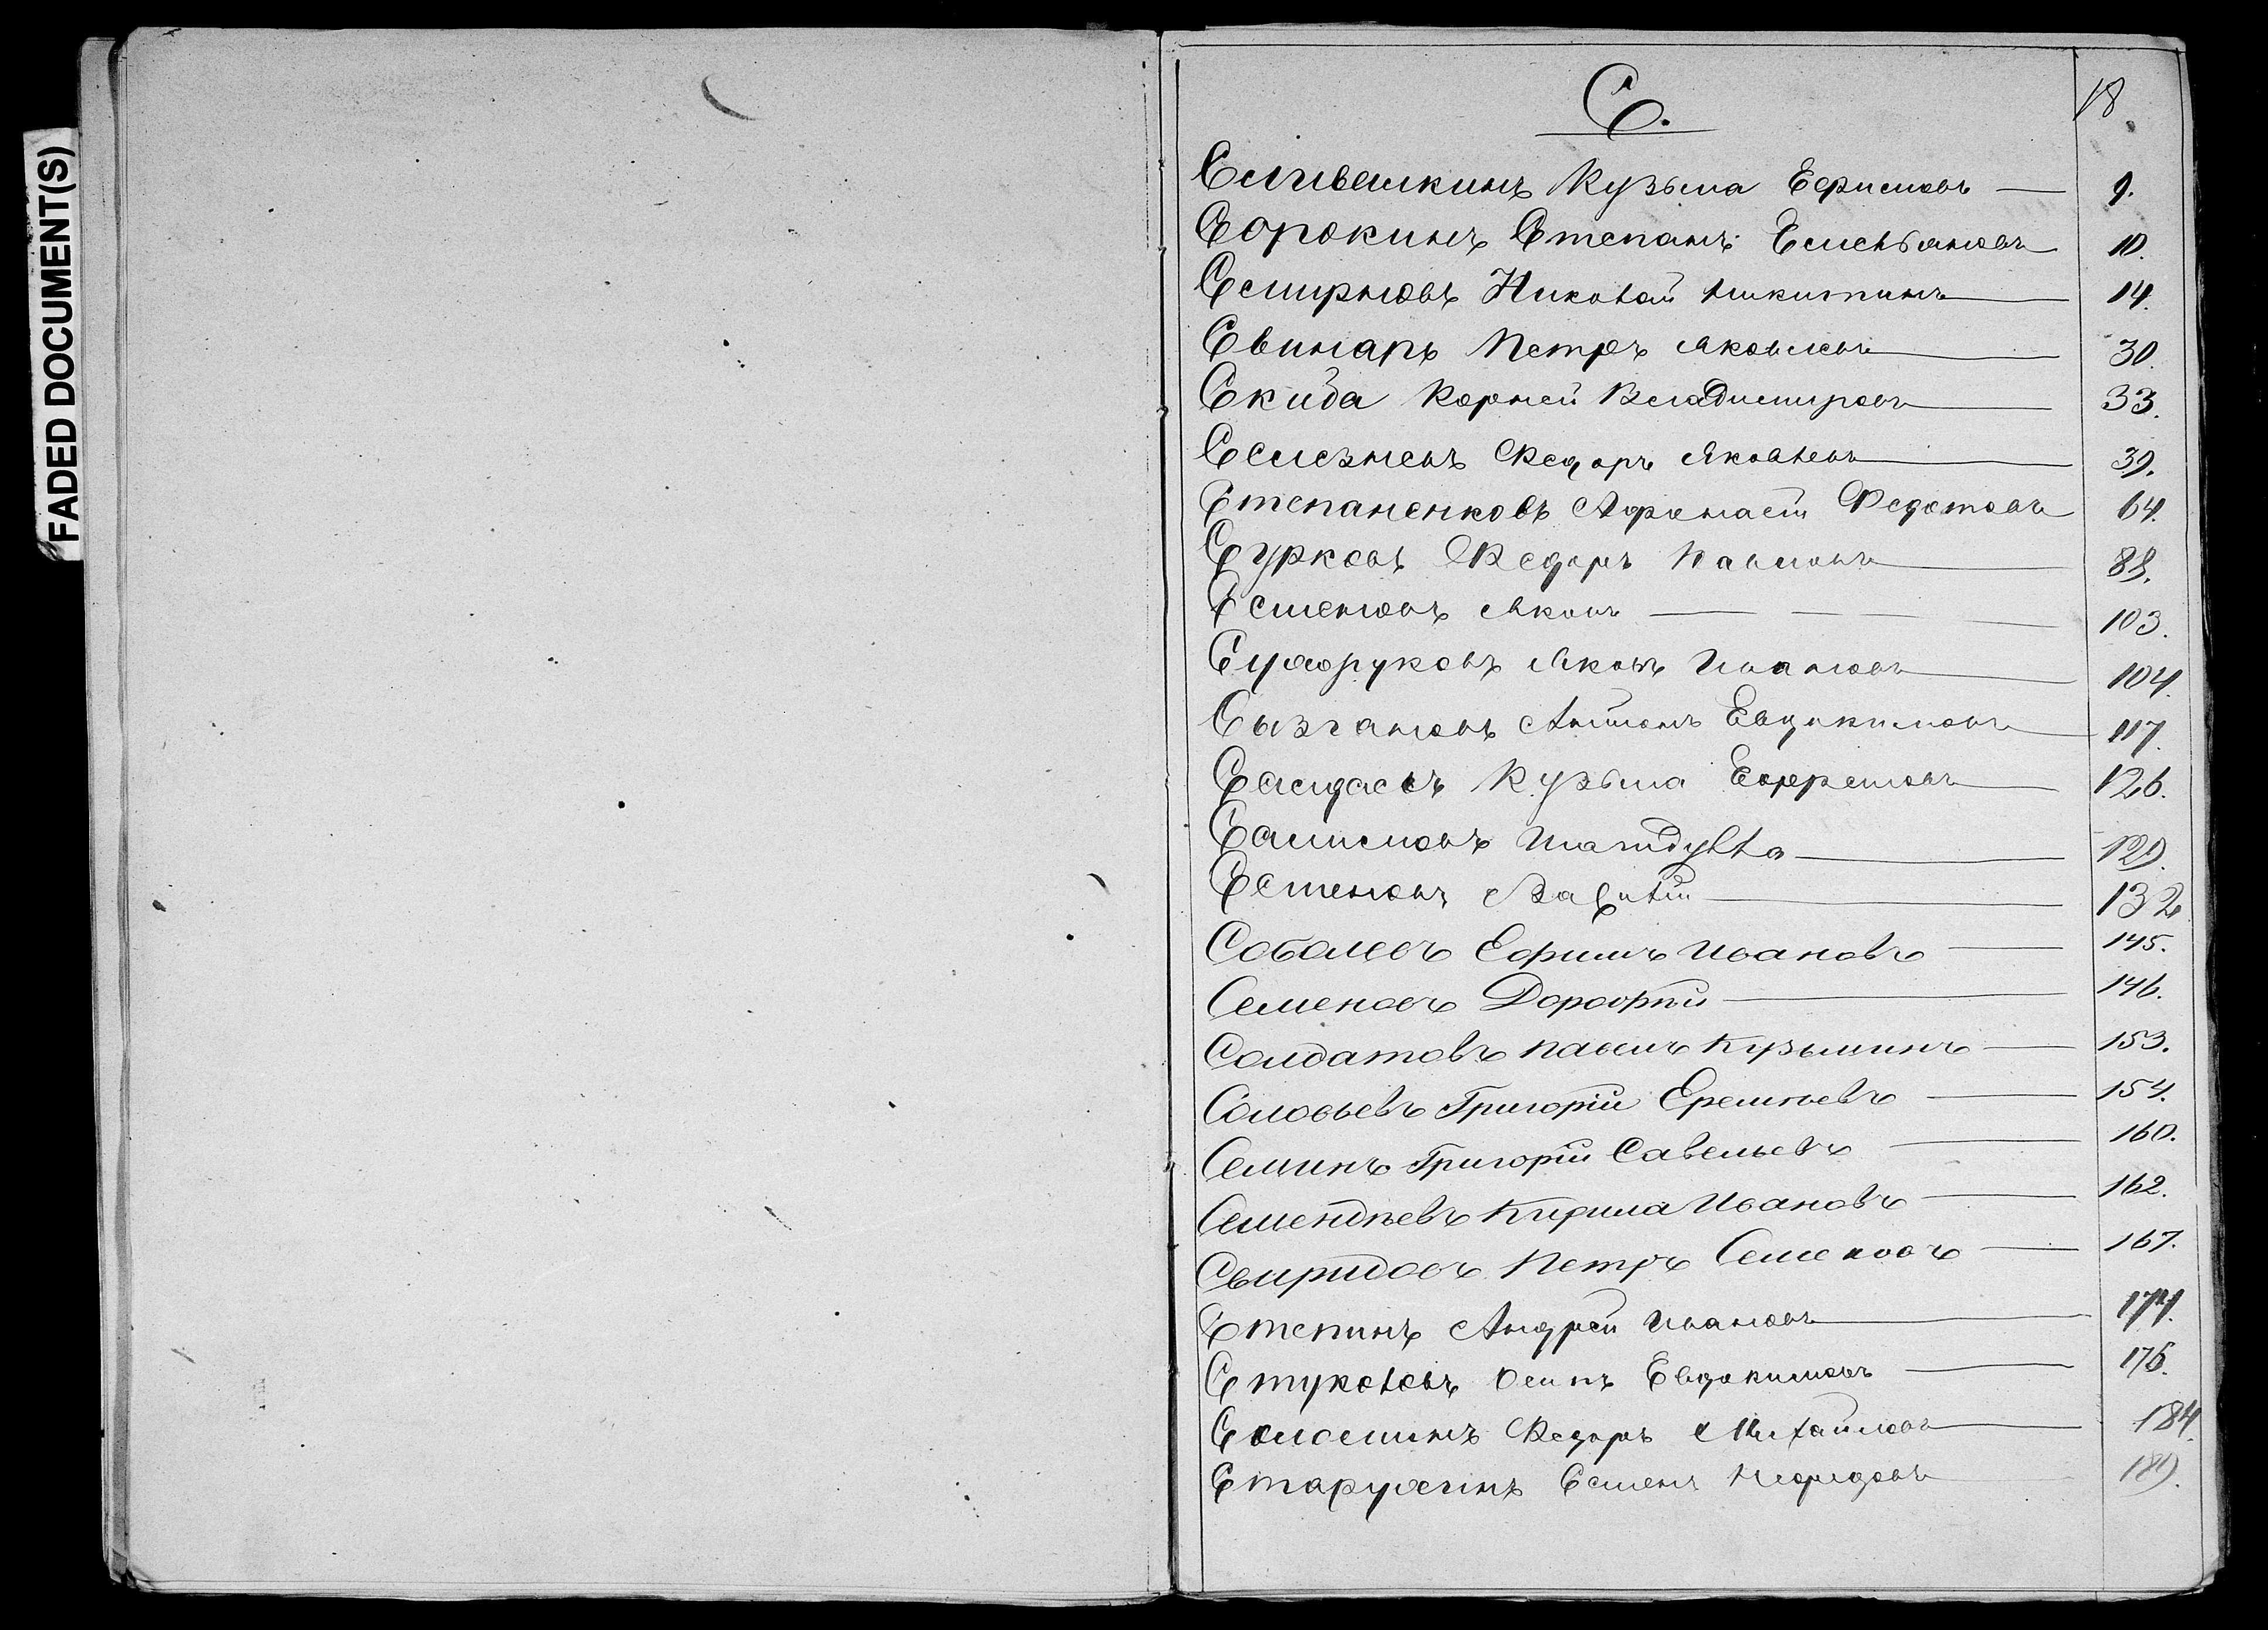 FADED DOCUMENT(S)
С.
18
Сливашкинъ Кузьма Ефимовъ — 9.
Сорокинъ Степанъ Емельяновъ 10.
Смирновъ Николай Никитинъ — 14.
Свинарь Петръ Яковлевъ — 30.
Скиба Корней Владимировъ — 33.
Селезневъ Федоръ Яковлевъ — 39.
Степаненковъ Афанасій Федотовъ 64.
Сурковъ Федоръ Павловъ — 88.
Семеновъ Яковъ — 103.
Сухоруковъ Яковъ Ивановъ — 104.
Сызгановъ Евдокимовъ — 117.
Кузьма Ефремовъ — 126.
Салимовъ — 129.
Семеновъ — 132
Соболевъ Ефимъ Ивановъ — 145.
Семеновъ Дорофѣй — 146.
Солдатовъ Павелъ Кузьминъ — 153.
Соловьевъ Григорій Еремѣевъ — 154.
Семинъ Григорій Савельевъ — 160.
Семендѣевъ Кирила Ивановъ — 162.
Свиридовъ Петръ Семеновъ — 167.
Степинъ Андрей Ивановъ — 174.
Стукаловъ Осипъ Евдокимовъ — 176.
Соломинъ Федоръ Михайловъ — 184.
Старухинъ Семенъ — 189.